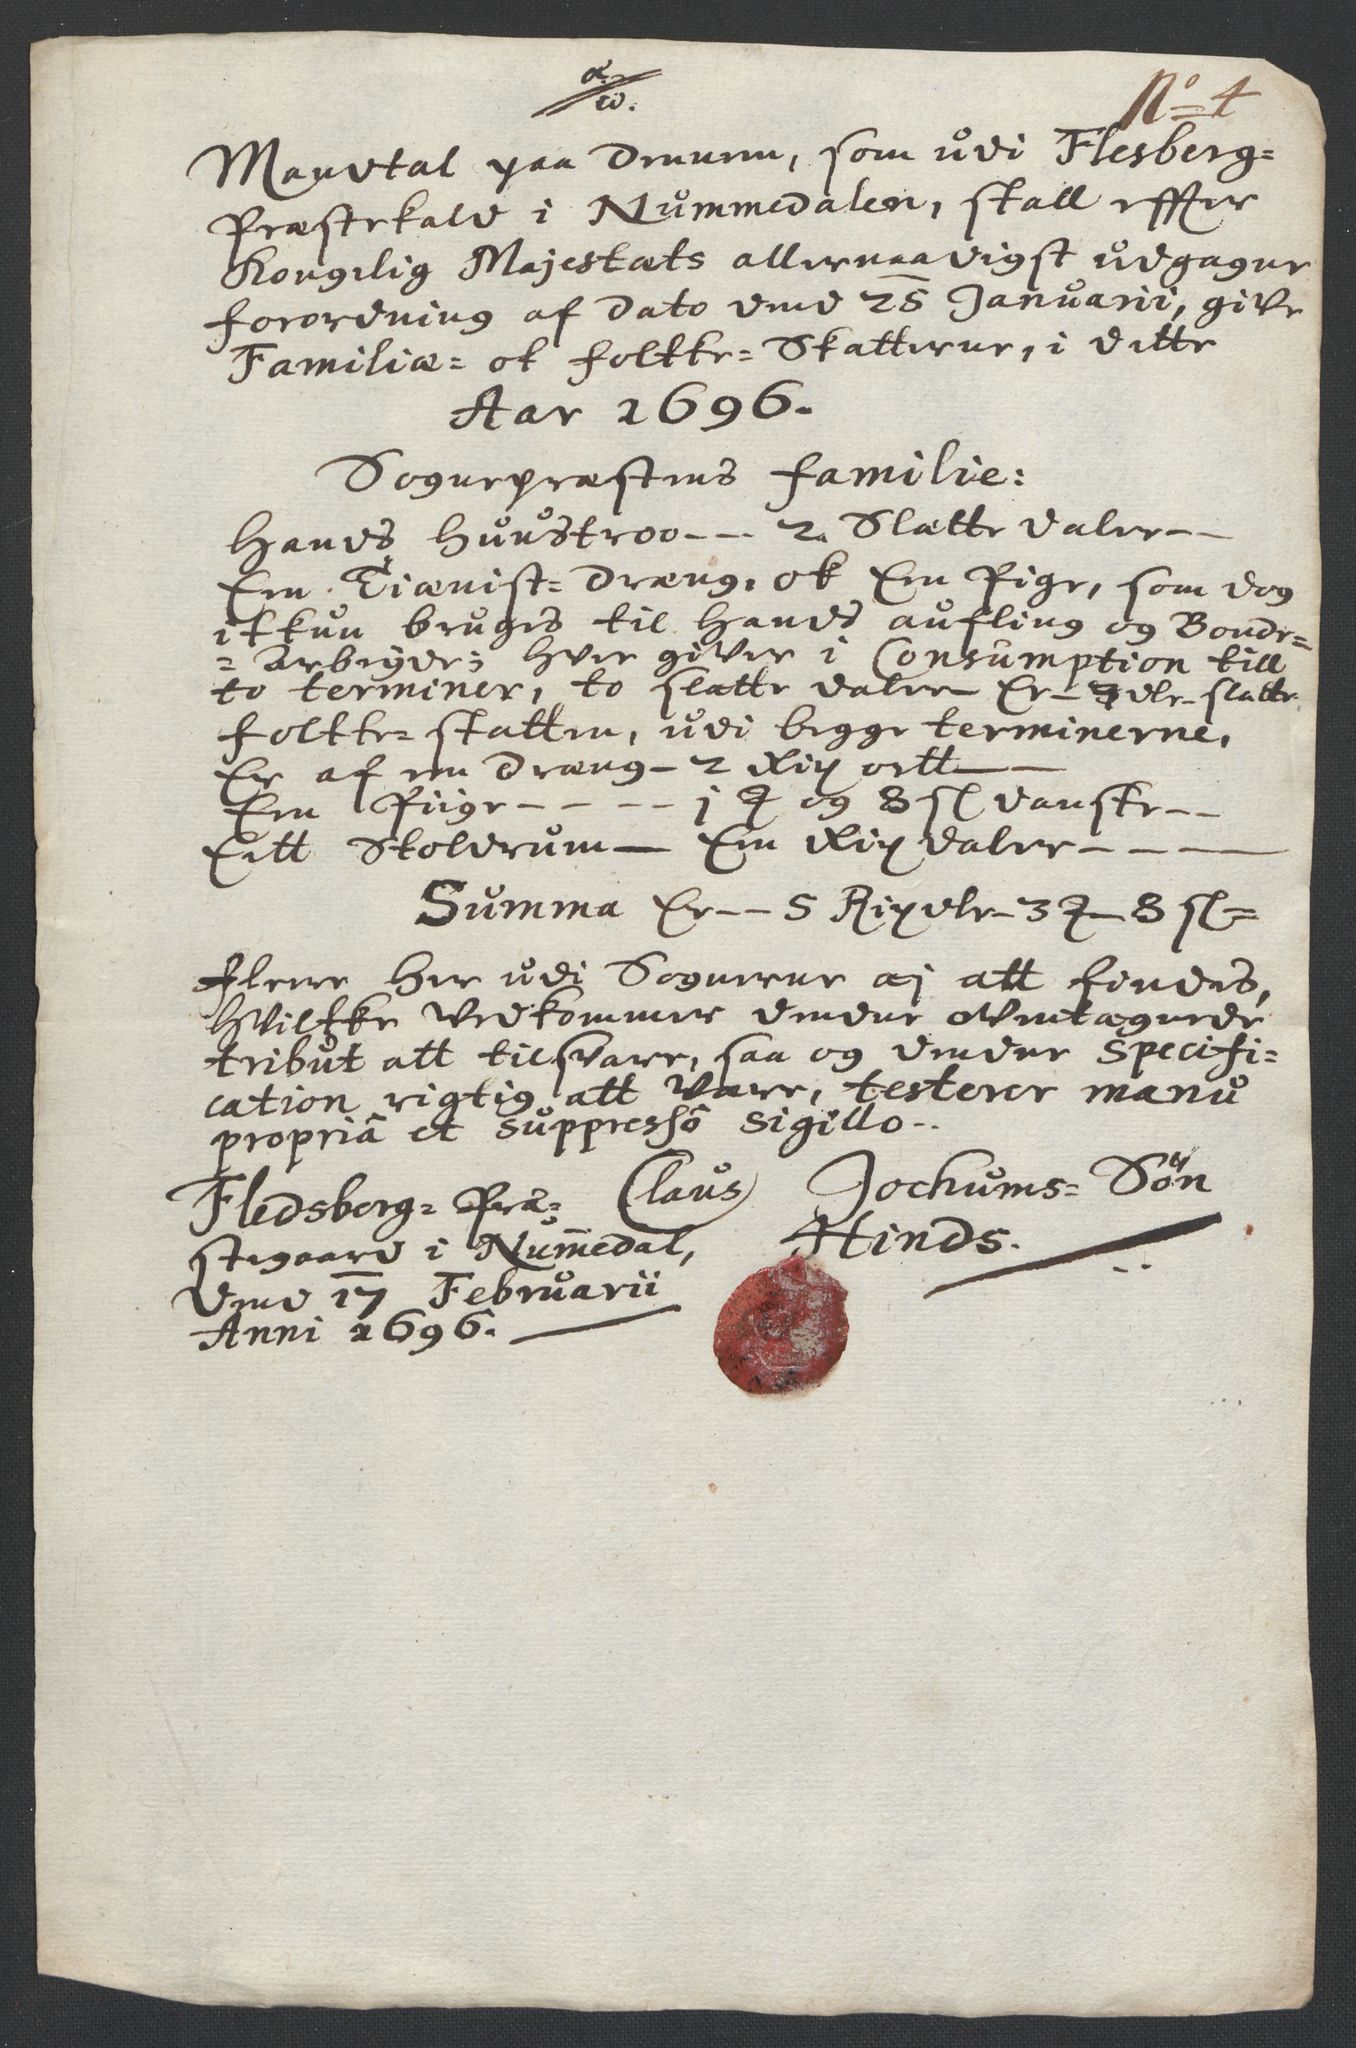 α/ω.
No 4
Mandtal paa dennem, som udi Flesberg=
Præstekald i Nummedalen, skall effter
Kongelig Majestæts allernaadigst udgagne
forordning af dato dend 25 Januarii, give
Familiæ= ok folkke= Skatterne, i dette
Aar 1696.
Sognepræstens familie:
Hands Huustroo --- 2. Slætte daler --
Een Tiænist= dræng, ok Een Pige, som dog
ikkun bruges til hands aufling og Bonde=
= arbeyde; hver giver i Consumption till
to terminer, to slætte daler Er - 3 dlr - slætte
folkke= skatten, udi begge terminerne,
Er af en dræng - 2 Rix ortt
Een Piige - - - - 1 ℥ og 8 sl danske --
Eett Skoldrum - Een Rixdaler - - - -
Summa Er -- 5 Rixdlr - 3 ℥ - 8 sl=
fleere her udi Sognerne ej att findes,
hvilkke vedkommer denne ommtagende
tribut att tilsvare, saa og denne specifi=
cation rigtig att være, testerer manu
propriâ et suppressô sigillo..
Fledsberg= Præ= Claus Jochums= Søn
stegaard i Num̄edal, Hinds.
dend 17 Februarii
Anni 1696.